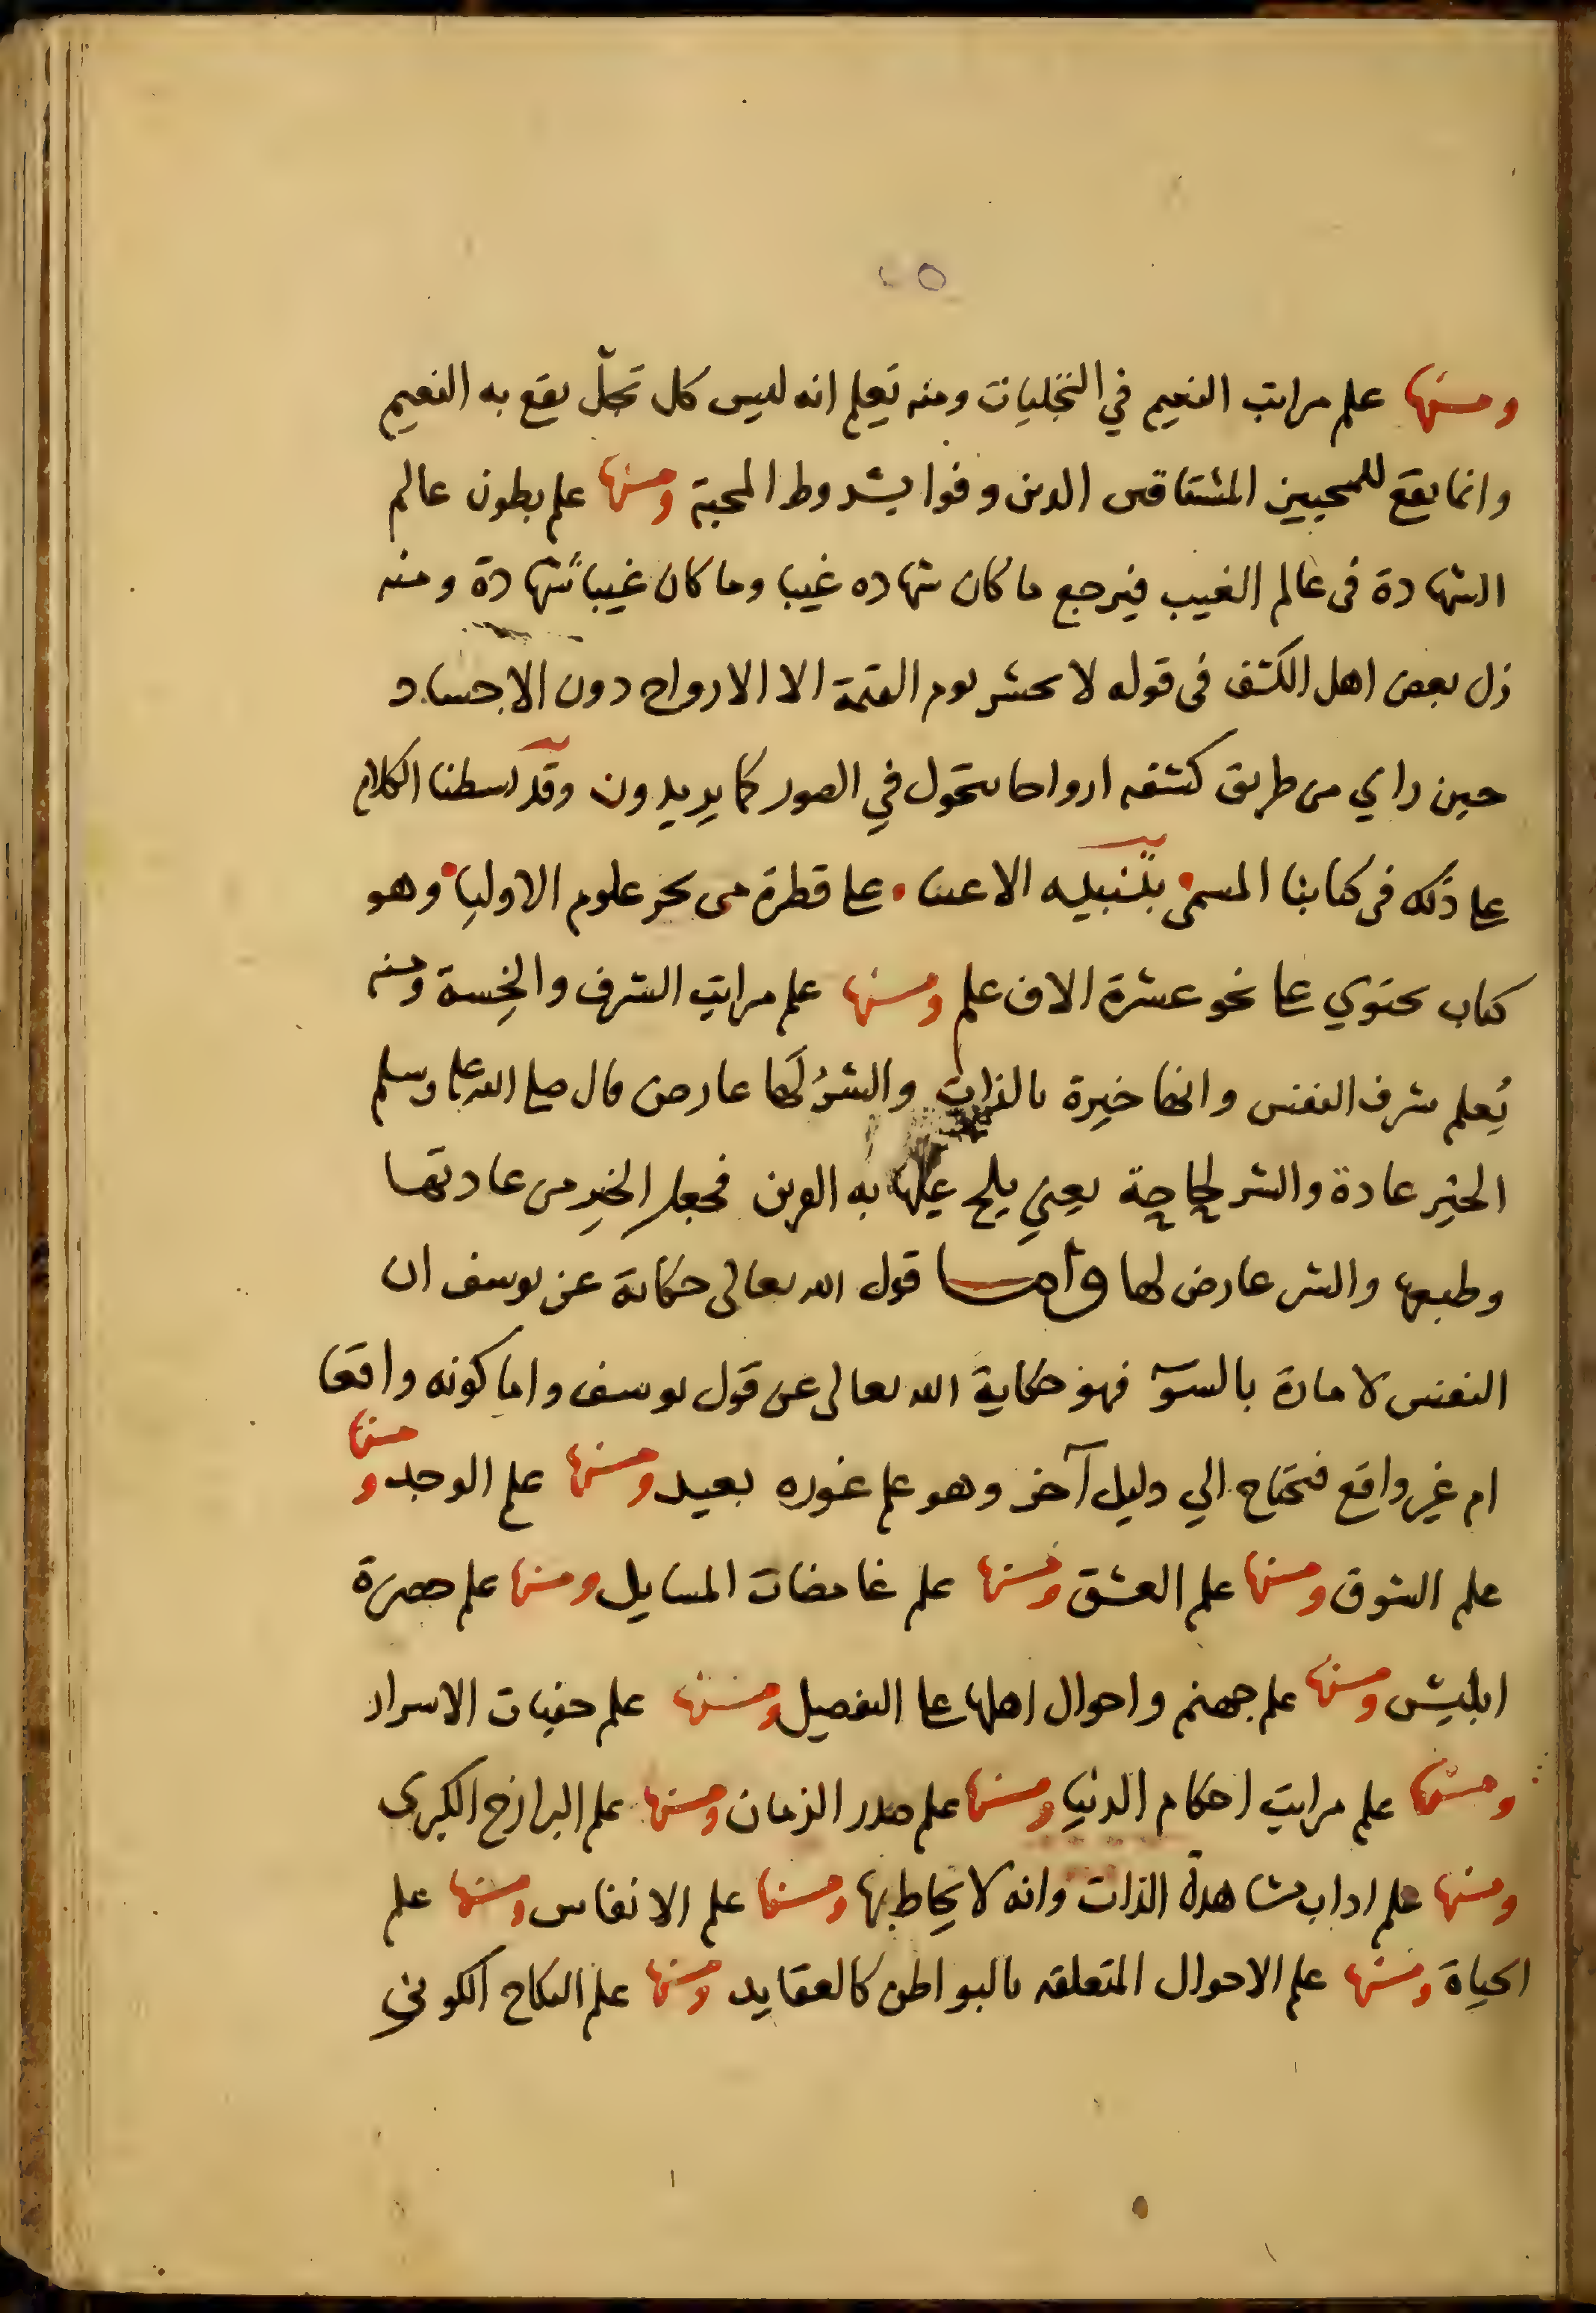 ٥
ومنها علم مراتب النعيم في التجليات ومنه يَعلم انه ليس كل تجلّ يقع به النعيم
وانما يقع للمحبين المشتاقين الذين وفوا بشروط المحبة ومنها علم بطون عالم
الشهادة في عالم الغيب فيرجع ما كان شهاده غيبا وما كان غيباً شهادة ومنه
زل بعض اهل الكشف في قوله لا يحشر يوم القيمة الا الارواح دون الاجساد
حين راي من طريق كشفه ارواحا تتحول في الصور كما يريدون وقد بسطنا الكلام
على ذلك في كتابنا المسمى بتنبيه الاغبيا على قطرة من بحر علوم الاوليا وهو
كتاب يحتوي على نحو عشرة الاف علم ومنها علم مراتب الشرف والخِسة ومنه
يُعلم شرف النفس وانها خيرة بالذات والشرُ لَها عارض قال صلى الله عليه وسلم
الخير عادة والشر لجاجة يعني يلح عليها به القرين فجعل الخير من عادتها
وطبعها والشر عارض لها وأما قول الله تعالى حكاية عن يوسف ان
النفس لامارة بالسوٓ فهو حكاية الله تعالى عن قول يوسف واما كونه واقعا
ام غير واقع فتحتاج الي دليل آخر وهو علم غوره بعيد ومنها علم الوجد ومنها
علم الشوق ومنها علم العشق ومنها علم غامضات المسايل ومنها علم حضرة
ابليس ومنها علم جهنم واحوال اهلها على التفصيل ومنها علم خفيات الاسرار
ومنها علم مراتب احكام الدنيا ومنها علم صدر الزمان ومنها علم البرازخ الكبرى
ومنها علم اداب مشاهدة الذات وانه لا يحاط بها ومنها علم الانفاس ومنها علم
الحياة ومنها علم الاحوال المتعلقه بالبواطن كالعقايد ومنها علم النكاح الكوني